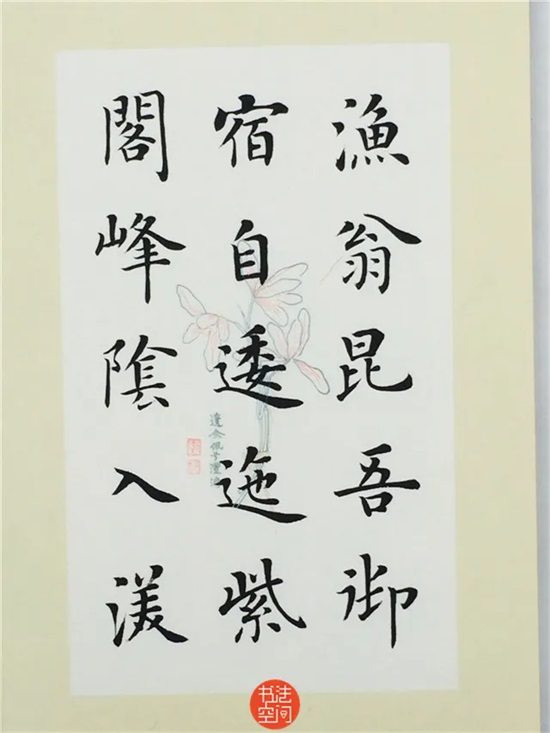 漁翁昆吾御
宿自逶迤紫
閣峰陰入渼
书法
空间